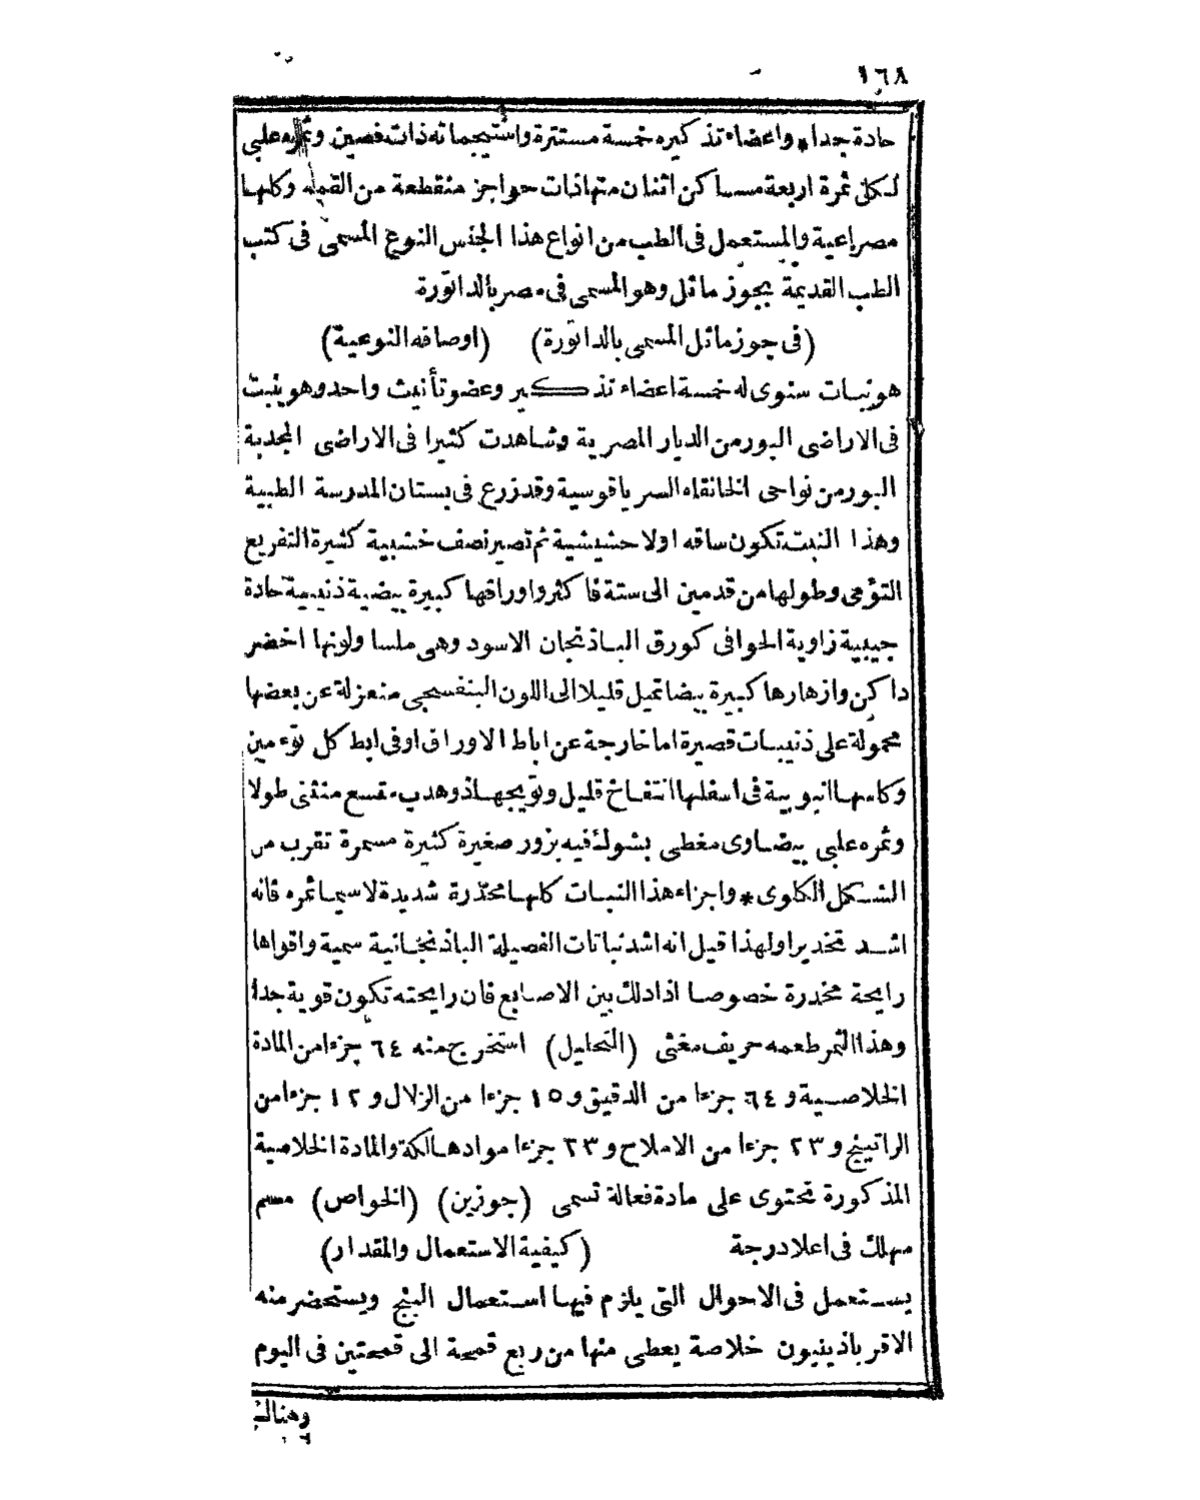 ١٦٨
حادة جدا * واعضاء تذكيره خمسة مستترة واستيجماته ذات فصين وثمره علبى
لكل ثمرة اربعة مساكن اثنان منها ذات حواجز منقطعة من القمه وكلها
مصراعية والمستعمل فى الطب من انواع هذا الجنس النوع المسمى فى كتب
الطب القديمة بجوز ماثل وهو المسمى فى مصر بالداتورة
(فى جوز ماثل المسمى بالداتورة) (اوصافه النوعية)
هو نبات سنوى له خمسة اعضاء تذكير وعضو تأنيث واحد وهو ينبت
فى الاراضى البور من الديار المصرية وشاهدت كثيرا فى الاراضى المجدبة
البور من نواحى الخانقاه السرياقوسية وقد زرع فى بستان المدرسة الطبية
وهذا النبت تكون ساقه اولا حشيشية ثم تصير نصف خشبية كثيرة التفريع
التؤمى وطولها من قدمين الى ستة فاكثر واوراقها كبيرة بيضية ذنيبية حادة
جيبية زاوية الحوافى كورق الباذنجان الاسود وهى ملسا ولونها اخضر
داكن وازهارها كبيرة بيضا تميل قليلا الى اللون البنفسجى منعزلة عن بعضها
محمولة على ذنيبات قصيرة اما خارجة عن اباط الاوراق او فى ابط كل توءمين
وكاسها انبوبية فى اسفلها انتفاخ قليل وتويجها ذو هدب متسع منثنى طولا
وثمره علبى بيضاوى مغطى بشوك فيه بزور صغيرة كثيرة مسمرة تقرب من
الشكل الكلوى * واجزاء هذا النبات كلها مخدرة شديدة لاسيما ثمره فانه
اشد تخديرا ولهذا قيل انه اشد نباتات الفصيلة الباذنجانية سمية واقواها
رايحة مخدرة خصوصا اذا دلك بين الاصابع فان رايحته تكون قوية جدا
وهذا الثمر طعمه حريف مغثى (التحليل) استخرج منه ٦٤ جزءا من المادة
الخلاصية و ٦٤ جزءا من الدقيق و ١٥ جزءا من الزلال و ١٢ جزءا من
الراتينج و ٢٣ جزءا من الاملاح و ٢٣ جزءا مواد هالكة والمادة الخلاصية
المذكورة تحتوى على مادة فعالة تسمى (جوزين) (الخواص) مسم
مهلك فى اعلا درجة (كيفية الاستعمال والمقدار)
يستعمل فى الاحوال التى يلزم فيها استعمال البنج ويستحضر منه
الاقرباذينيون خلاصة يعطى منها من ربع قمحة الى قمحتين فى اليوم
وهناك